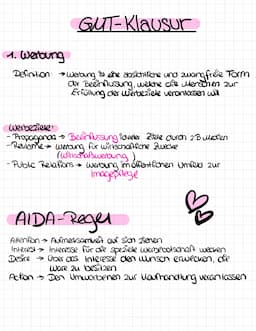 GUT-Klausur
1. Werbung
Definition → Werbung ist eine absichtliche und zwangfreie Form
der Beeinflussung, welche die Menschen zur
Erfüllung der Werbeziele veranlassen will
Werbeziele:
- Propaganda → Beeinflussung Ziele durch z.B. Medien
- Reklame → Werbung für wirtschaftliche Zwecke
(Wirtschaftswerbung)
- Public Relations → Werbung im öffentlichen Umfeld zur
Imagepflege
AIDA-Regel
Attention → Aufmerksamkeit auf sich ziehen
Interest → Interesse für die spezielle Werbebotschaft wecken
Desire → über das Interesse den Wunsch erwecken, die
Ware zu besitzen
Action → Den Umworbenen zur Kaufhandlung veranlassen